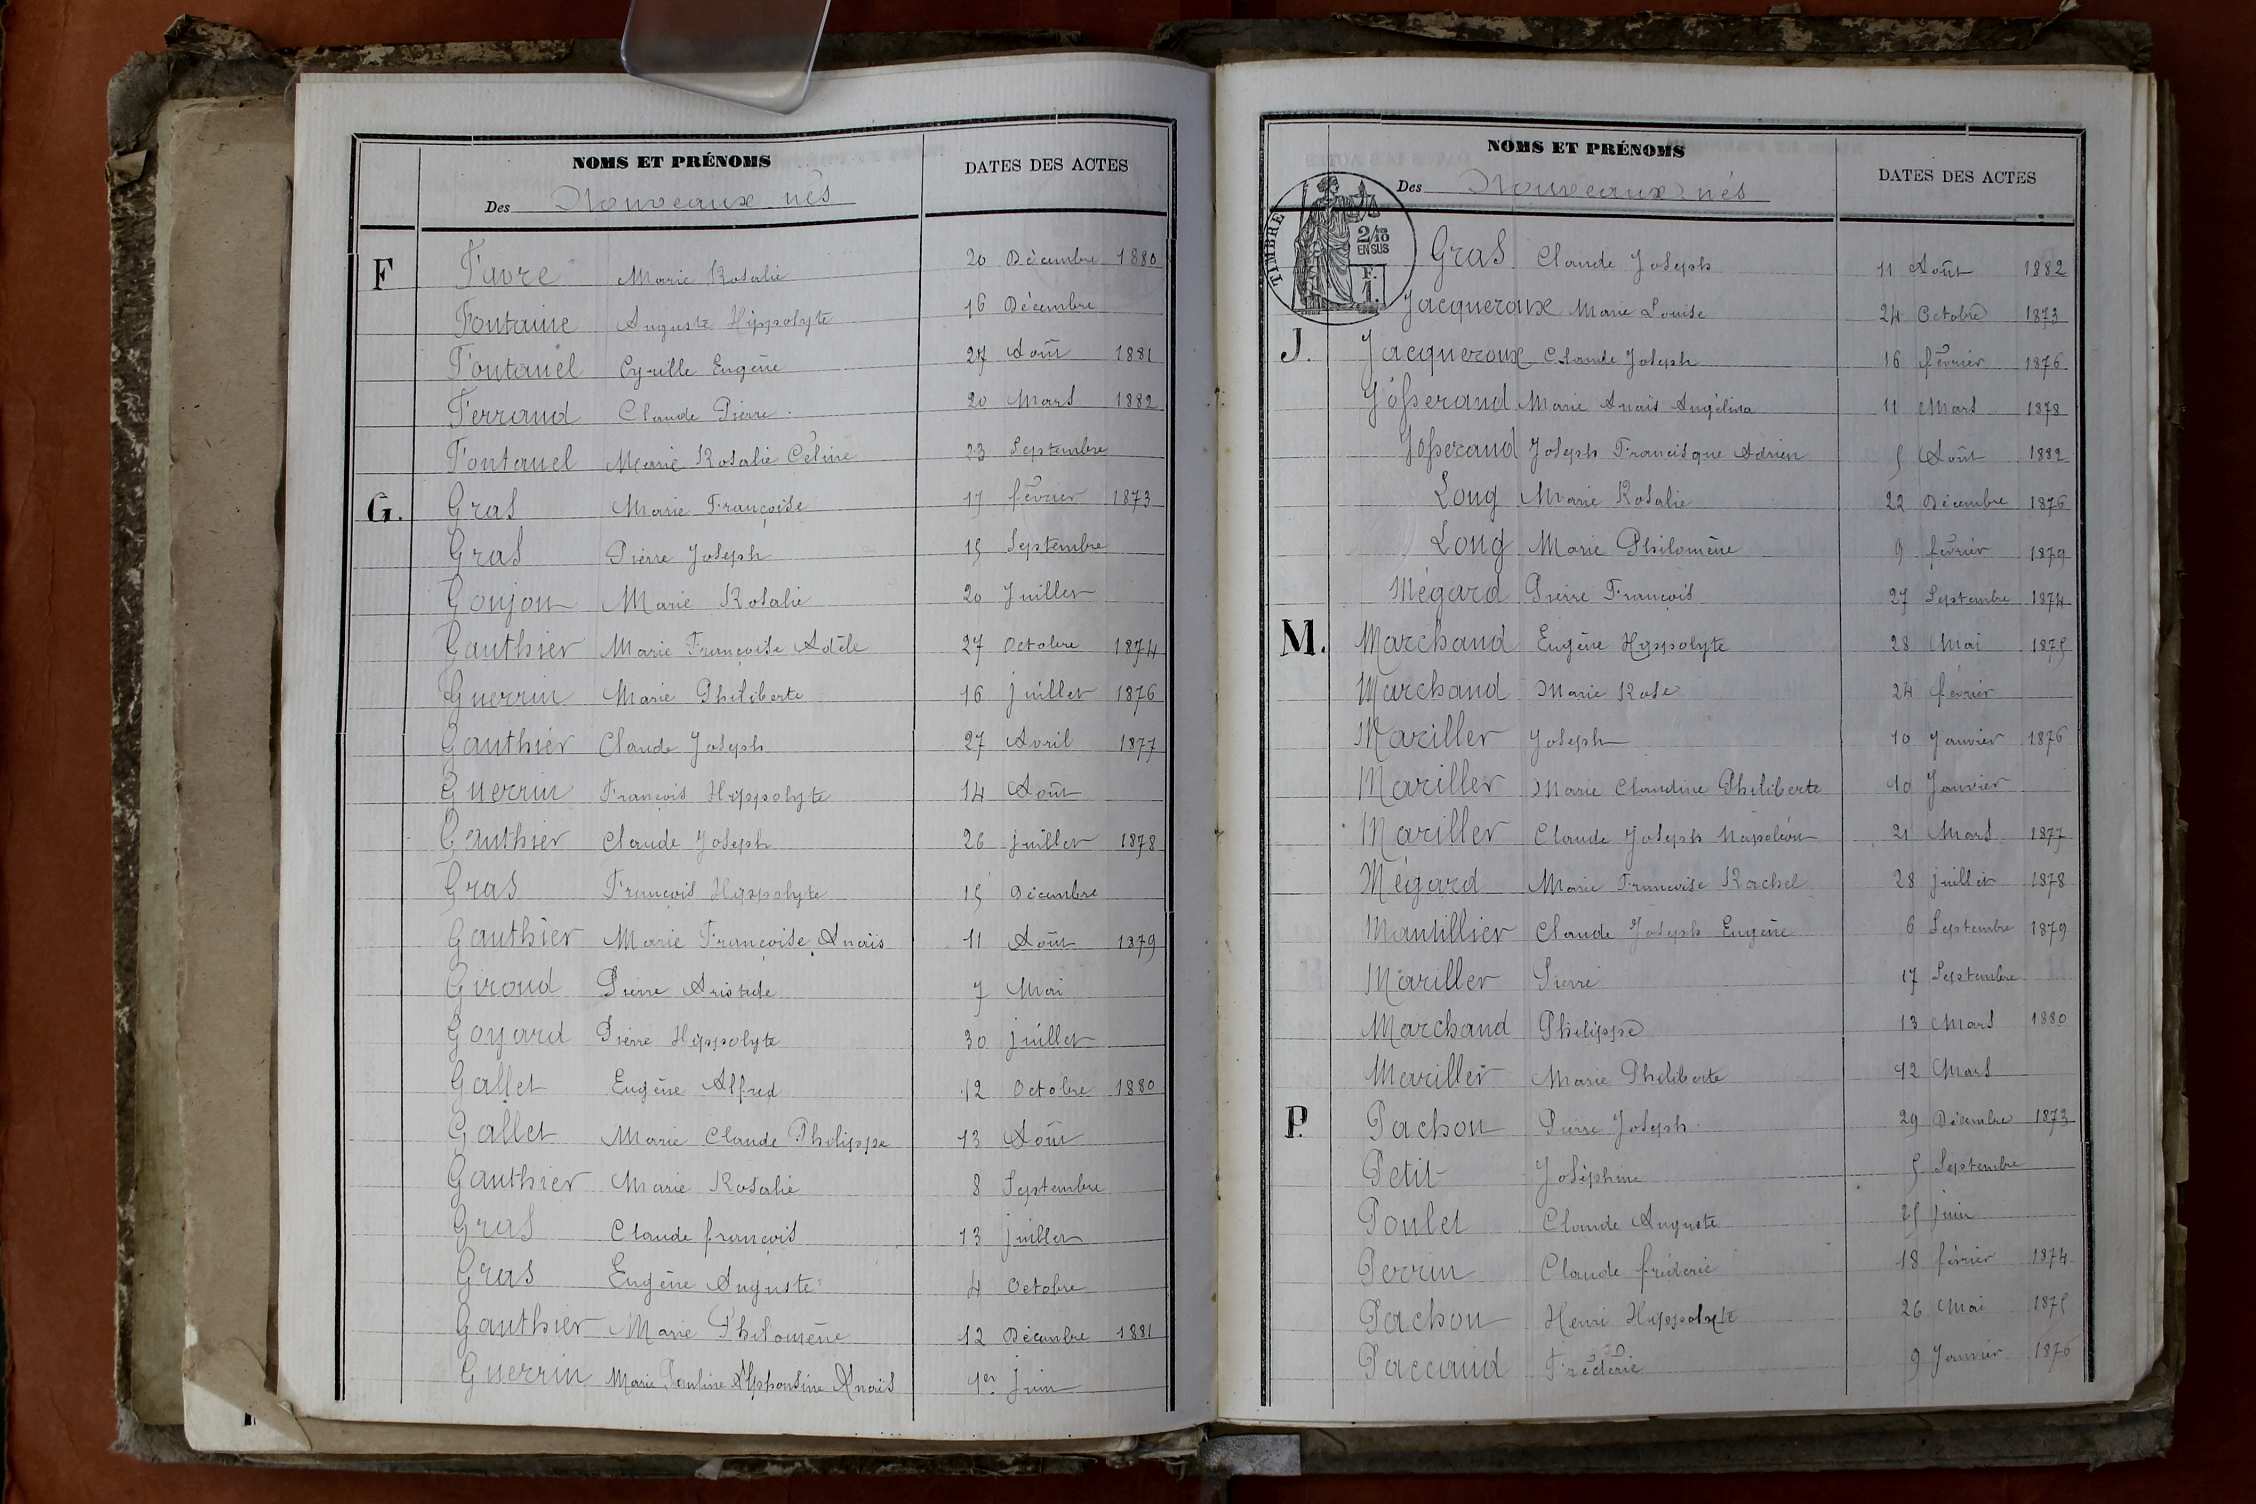 NOMS ET PRÉNOMS DATES DES ACTES
Des Nouveaux nés
F Favre Marie Rosalie 20 Décembre 1880
Fontaine Auguste Hippolyte 16 Décembre
Fontanel Cyrille Eugène 27 Août 1881
Ferraud Claude Pierre 20 Mars 1882
Fontanel Marie Rosalie Céline 23 Septembre
G. Gras Marie Françoise 17 février 1873
Gras Pierre Joseph 15 Septembre
Goujon Marie Rosalie 20 Juillet
Gauthier Marie Françoise Adèle 27 Octobre 1874
Guerrin Marie Philiberte 16 juillet 1876
Gauthier Claude Joseph 27 Avril 1877
Guerrin François Hyppolyte 14 Août
Gauthier Claude Joseph 26 juillet 1878
Gras François Hyppolyte 15 Décembre
Gauthier Marie Françoise Anaïs 11 Août 1879
Giroud Pierre Aristide 7 Mai
Goyard Pierre Hyppolyte 30 juillet
Gallet Eugène Alfred 12 Octobre 1880
Gallet Marie Claude Philippe 13 Août
Gauthier Marie Rosalie 8 Septembre
Gras Claude françois 13 juillet
Gras Eugène Auguste 4 Octobre
Gauthier Marie Philomène 12 Décembre 1881
Guerrin Marie Pauline Alphonsine Anaïs 1er juin
NOMS ET PRÉNOMS DATES DES ACTES
Des Nouveaux nés
TIMBRE
2/10
EN SUS
F.
1.
Gras Claude Joseph 11 Août 1882
Jacqueroux Marie Louise 24 Octobre 1873
J. Jacqueroux Claude Joseph 16 février 1876
Josserand Marie Anaïs Angélina 11 Mars 1878
Josserand Joseph Francisque Adrien 5 Août 1882
Long Marie Rosalie 22 Décembre 1876
Long Marie Philomène 9 février 1879
Mégard Pierre François 27 Septembre 1874
M. Marchand Eugène Hyppolyte 28 Mai 1875
Marchand Marie Rose 24 février
Mariller Joseph 10 Janvier 1876
Mariller Marie Claudine Philiberte 10 Janvier
Mariller Claude Joseph Napoléon 21 Mars 1877
Mégard Marie Françoise Rachel 28 juillet 1878
Mantillier Claude Joseph Eugène 6 Septembre 1879
Mariller Pierre 17 Septembre
Marchand Philippe 13 Mars 1880
Mariller Marie Philiberte 12 Mars
P. Pachon Pierre Joseph 29 Décembre 1873
Petit Joséphine 5 Septembre
Poulet Claude Auguste 25 juin
Perrin Claude fréderic 18 février 1874
Pachon Henri Hyppolyte 26 Mai 1875
Paccaud Fréderic 9 Janvier 1876